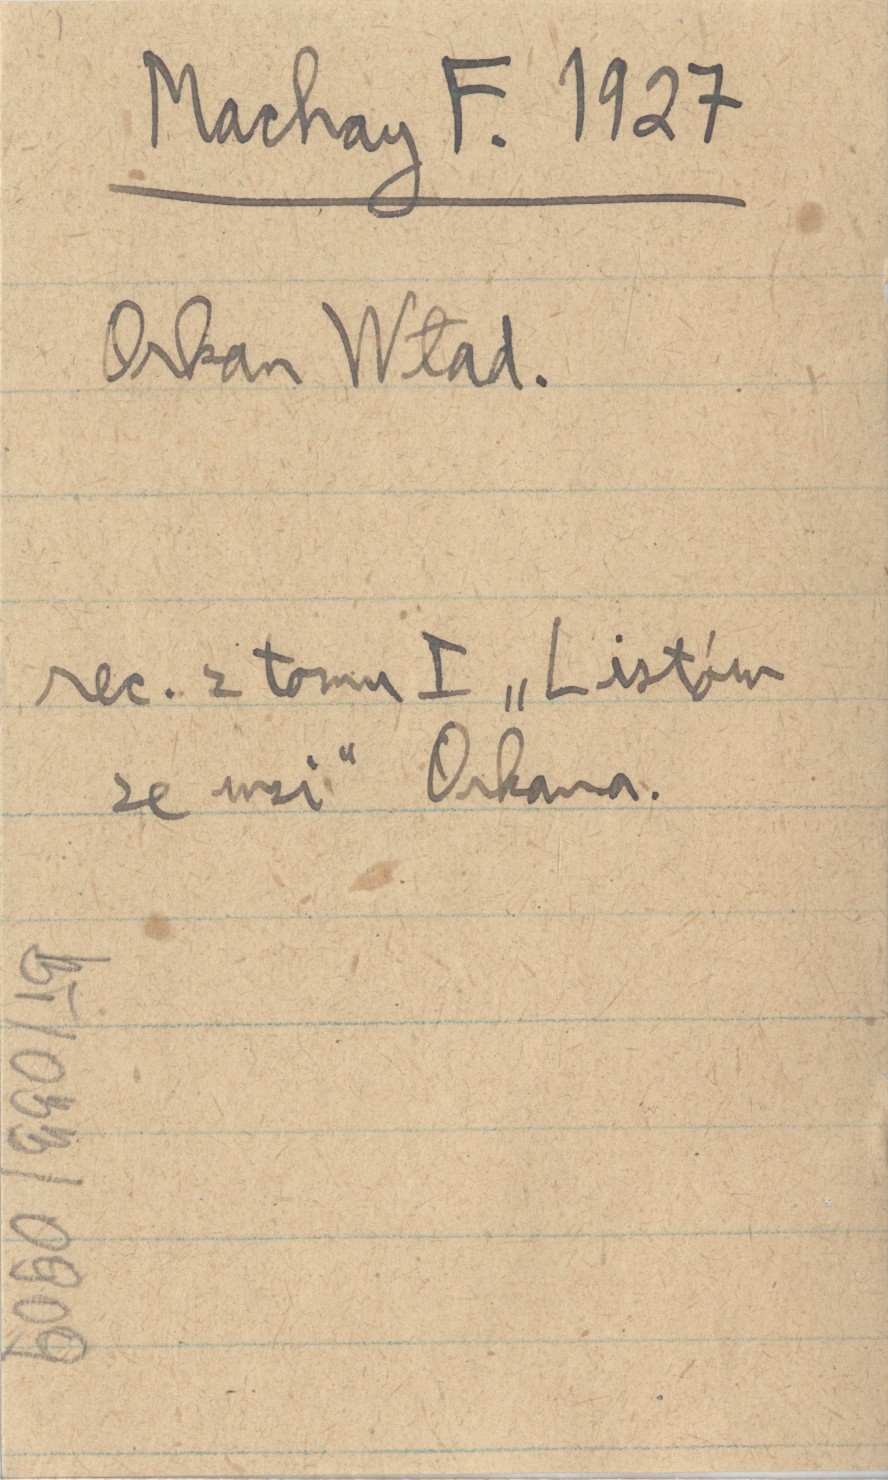 Machay F. 1927
Orkan Wład.
rec. z tomu I „Listów
ze wsi“ Orkana.